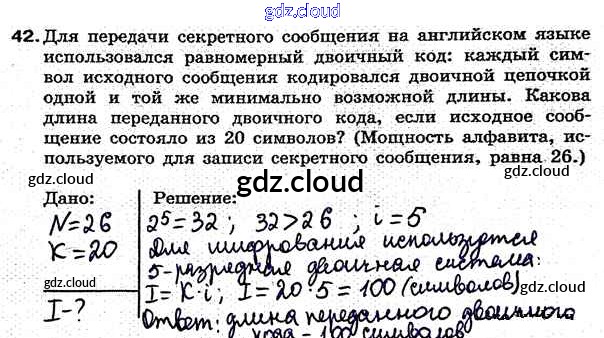 gdz.cloud
42. Для передачи секретного сообщения на английском языке
использовался равномерный двоичный код: каждый сим-
вол исходного сообщения кодировался двоичной цепочкой
одной и той же минимально возможной длины. Какова
длина переданного двоичного кода, если исходное сооб-
щение состояло из 20 символов? (Мощность алфавита, ис-
пользуемого для записи секретного сообщения, равна 26.)
gdz.cloud
gdz.cloud
gdz.cloud
Дано:
Решение:
N=26
2⁵=32 ; 32>26 ; i=5
K=20
Для шифрования используется
gdz.cloud
5-разрядная двоичная система:
I-?
I=K·i; I=20·5=100 (символов)
gdz.cloud
gdz.cloud
Ответ: длина переданного двоичного
кода - 100 символов